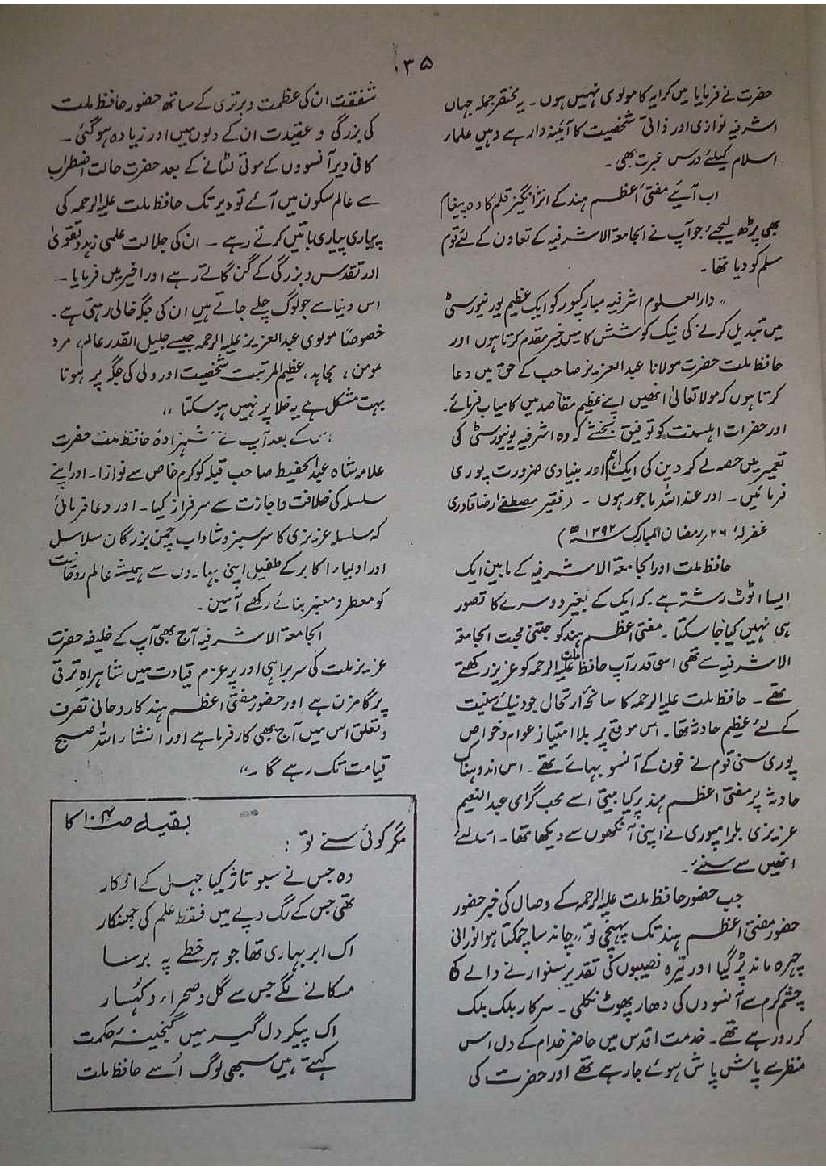 ۱۳۵
حضرت نے فرمایا میں کرایہ کا مولوی نہیں ہوں۔ یہ مختصر جملہ جہاں
اشرفیہ نوازی اور ذاتی شخصیت کا آئینہ دار ہے وہیں علمار
اسلام کیلئے درس عبرت بھی۔
اب آیئے مفتیٔ اعظم ہند کے اثر انگیز قلم کا وہ پیغام
بھی پڑھ لیجیئے جو آپ نے الجامعۃ الاشرفیہ کے تعاون کے لئے قوم
مسلم کو دیا تھا۔
،، دارالعلوم اشرفیہ مبارکپور کو ایک عظیم یونیورسٹی
میں تبدیل کرنے کی نیک کوشش کا میں خیر مقدم کرتا ہوں اور
حافظ ملت حضرت مولانا عبدالعزیز صاحب کے حق میں دعا
کرتا ہوں کہ مولا تعالیٰ انھیں اپنے عظیم مقاصد میں کامیاب فرمائے۔
اور حضرات اہلسنت کو توفیق بخشے کہ وہ اشرفیہ یونیورسٹی کی
تعمیر میں حصہ لے کر دین کی ایک اہم اور بنیادی ضرورت پوری
فرمائیں۔ اور عند اللہ ماجور ہوں۔ (فقیر مصطفےٰ رضا قادری
غفرلہٗ ۲۶ رمضان المبارک ۱۳۹۲ھ)
حافظ ملت اور الجامعۃ الاشرفیہ کے مابین ایک
ایسا اٹوٹ رشتہ ہے۔ کہ ایک کے بغیر دوسرے کا تصور
ہی نہیں کیا جا سکتا۔ مفتیٔ اعظم ہند کو جتنی محبت الجامعۃ
الاشرفیہ سے تھی اسی قدر آپ حافظ ملت علیہ الرحمہ کو عزیز رکھتے
تھے۔ حافظ ملت علیہ الرحمہ کا سانحۂ ارتحال جو دنیائے سنیت
کے لئے عظیم حادثہ تھا۔ اس موقع پر بلا امتیاز عوام و خواص
پوری سنی قوم نے خون کے آنسو بہائے تھے۔ اس اندوہناک
حادثہ پر مفتیٔ اعظم ہند پر کیا بیتی اسے محب گرامی عبدالنعیم
عزیزی بلرامپوری نے اپنی آنکھوں سے دیکھا تھا۔ اسلئے
انھیں سے سنئے۔
جب حضور حافظ ملت علیہ الرحمہ کے وصال کی خبر حضور
حضور مفتیٔ اعظم ہند تک پہنچی تو ،، چاند سا چمکتا ہوا نورانی
چہرہ ماند پڑ گیا اور تیرہ نصیبوں کی تقدیر سنوارنے والے کا
چشم کرم سے آنسووں کی دھار پھوٹ نکلی۔ سرکار بلک بلک
کر رو رہے تھے۔ خدمت اقدس میں حاضر خدام کے دل اس
منظر سے پاش پاش ہوئے جا رہے تھے اور حضرت کی
شفقت ان کی عظمت و برتری کے ساتھ حضور حافظ ملت
کی بزرگی و عقیدت ان کے دلوں میں اور زیادہ ہو گئی۔
کافی دیر آنسووں کے موتی لٹانے کے بعد حضرت حالت اضطراب
سے عالم سکون میں آئے تو دیر تک حافظ ملت علیہ الرحمہ کی
پیاری پیاری باتیں کرتے رہے۔ ان کی جلالت علمی زہد و تقویٰ
اور تقدس و بزرگی کے گن گاتے رہے اور اخیر میں فرمایا۔
اس دنیا سے جو لوگ چلے جاتے ہیں ان کی جگہ خالی رہتی ہے۔
خصوصاً مولوی عبدالعزیز علیہ الرحمہ جیسے جلیل القدر عالم، مرد
مومن، مجاہد، عظیم المرتبت شخصیت اور ولی کی جگہ پر ہونا
بہت مشکل ہے یہ خلا پر نہیں ہو سکتا ،،
اس کے بعد آپ نے شہزادۂ حافظ ملت حضرت
علامہ شاہ عبدالحفیظ صاحب قبلہ کو کرم خاص سے نوازا۔ اور اپنے
سلسلہ کی خلافت و اجازت سے سرفراز کیا۔ اور دعا فرمائی
کہ سلسلہ عزیزی کا سرسبز و شاداب چمن بزرگان سلاسل
اور اولیار اکابر کے طفیل اپنی بہاروں سے ہمیشہ عالم روحانیت
کو معطر و معنبر بنائے رکھے آمین۔
الجامعۃ الاشرفیہ آج بھی آپ کے خلیفہ حضرت
عزیز ملت کی سربراہی اور پر عزم قیادت میں شاہراہ ترقی
پر گامزن ہے اور حضور مفتیٔ اعظم ہند کا روحانی تصرف
و تعلق اس میں آج بھی کارفرما ہے اور انشار اللہ صبح
قیامت تک رہے گا۔،،
بقیہ صـ کا
مگر کوئی سنے تو:
وہ جس نے سبو تاژ کیا جہل کے افکار
تھی جس کے رگ و پے میں فقط علم کی جھنکار
اک ابر بہاری تھا جو ہر خطے پہ برسا
مسکانے لگے جس سے گل و صحرا و کہسار
اک پیکر دلگیر میں گنجینۂ حکمت
کہتے ہیں سبھی لوگ اُسے حافظ ملت